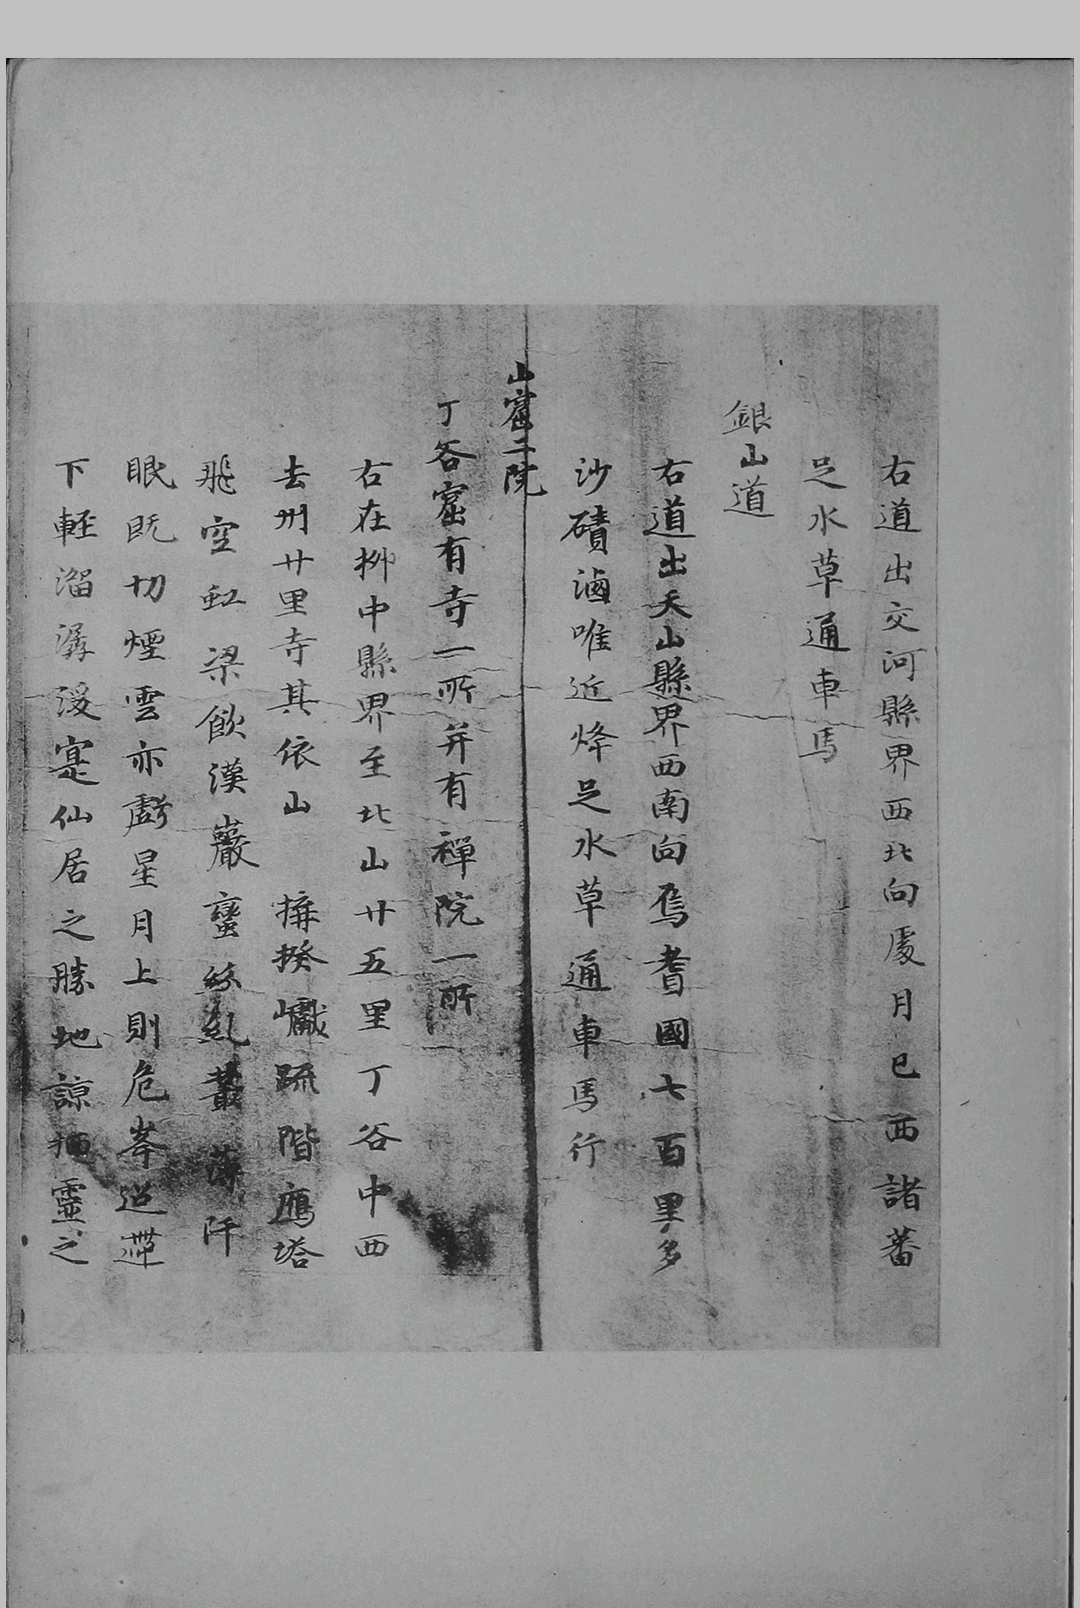 右道出交河縣界西北向處月已西諸蕃
足水草通車馬
銀山道
右道出天山縣界西南向焉耆國七百里多
沙磧滷唯近烽足水草通車馬行
山窟二院
丁谷窟有寺一所并有禪院一所
右在柳中縣界至北山廿五里丁谷中西
去州廿里寺其依山揆巘疏階鴈塔
飛空虹梁飲漢巖巒紛糺叢薄阡
眠既切煙雲亦虧星月上則危峯迢遰
下輕溜潺湲寔仙居之勝地諒栖靈之